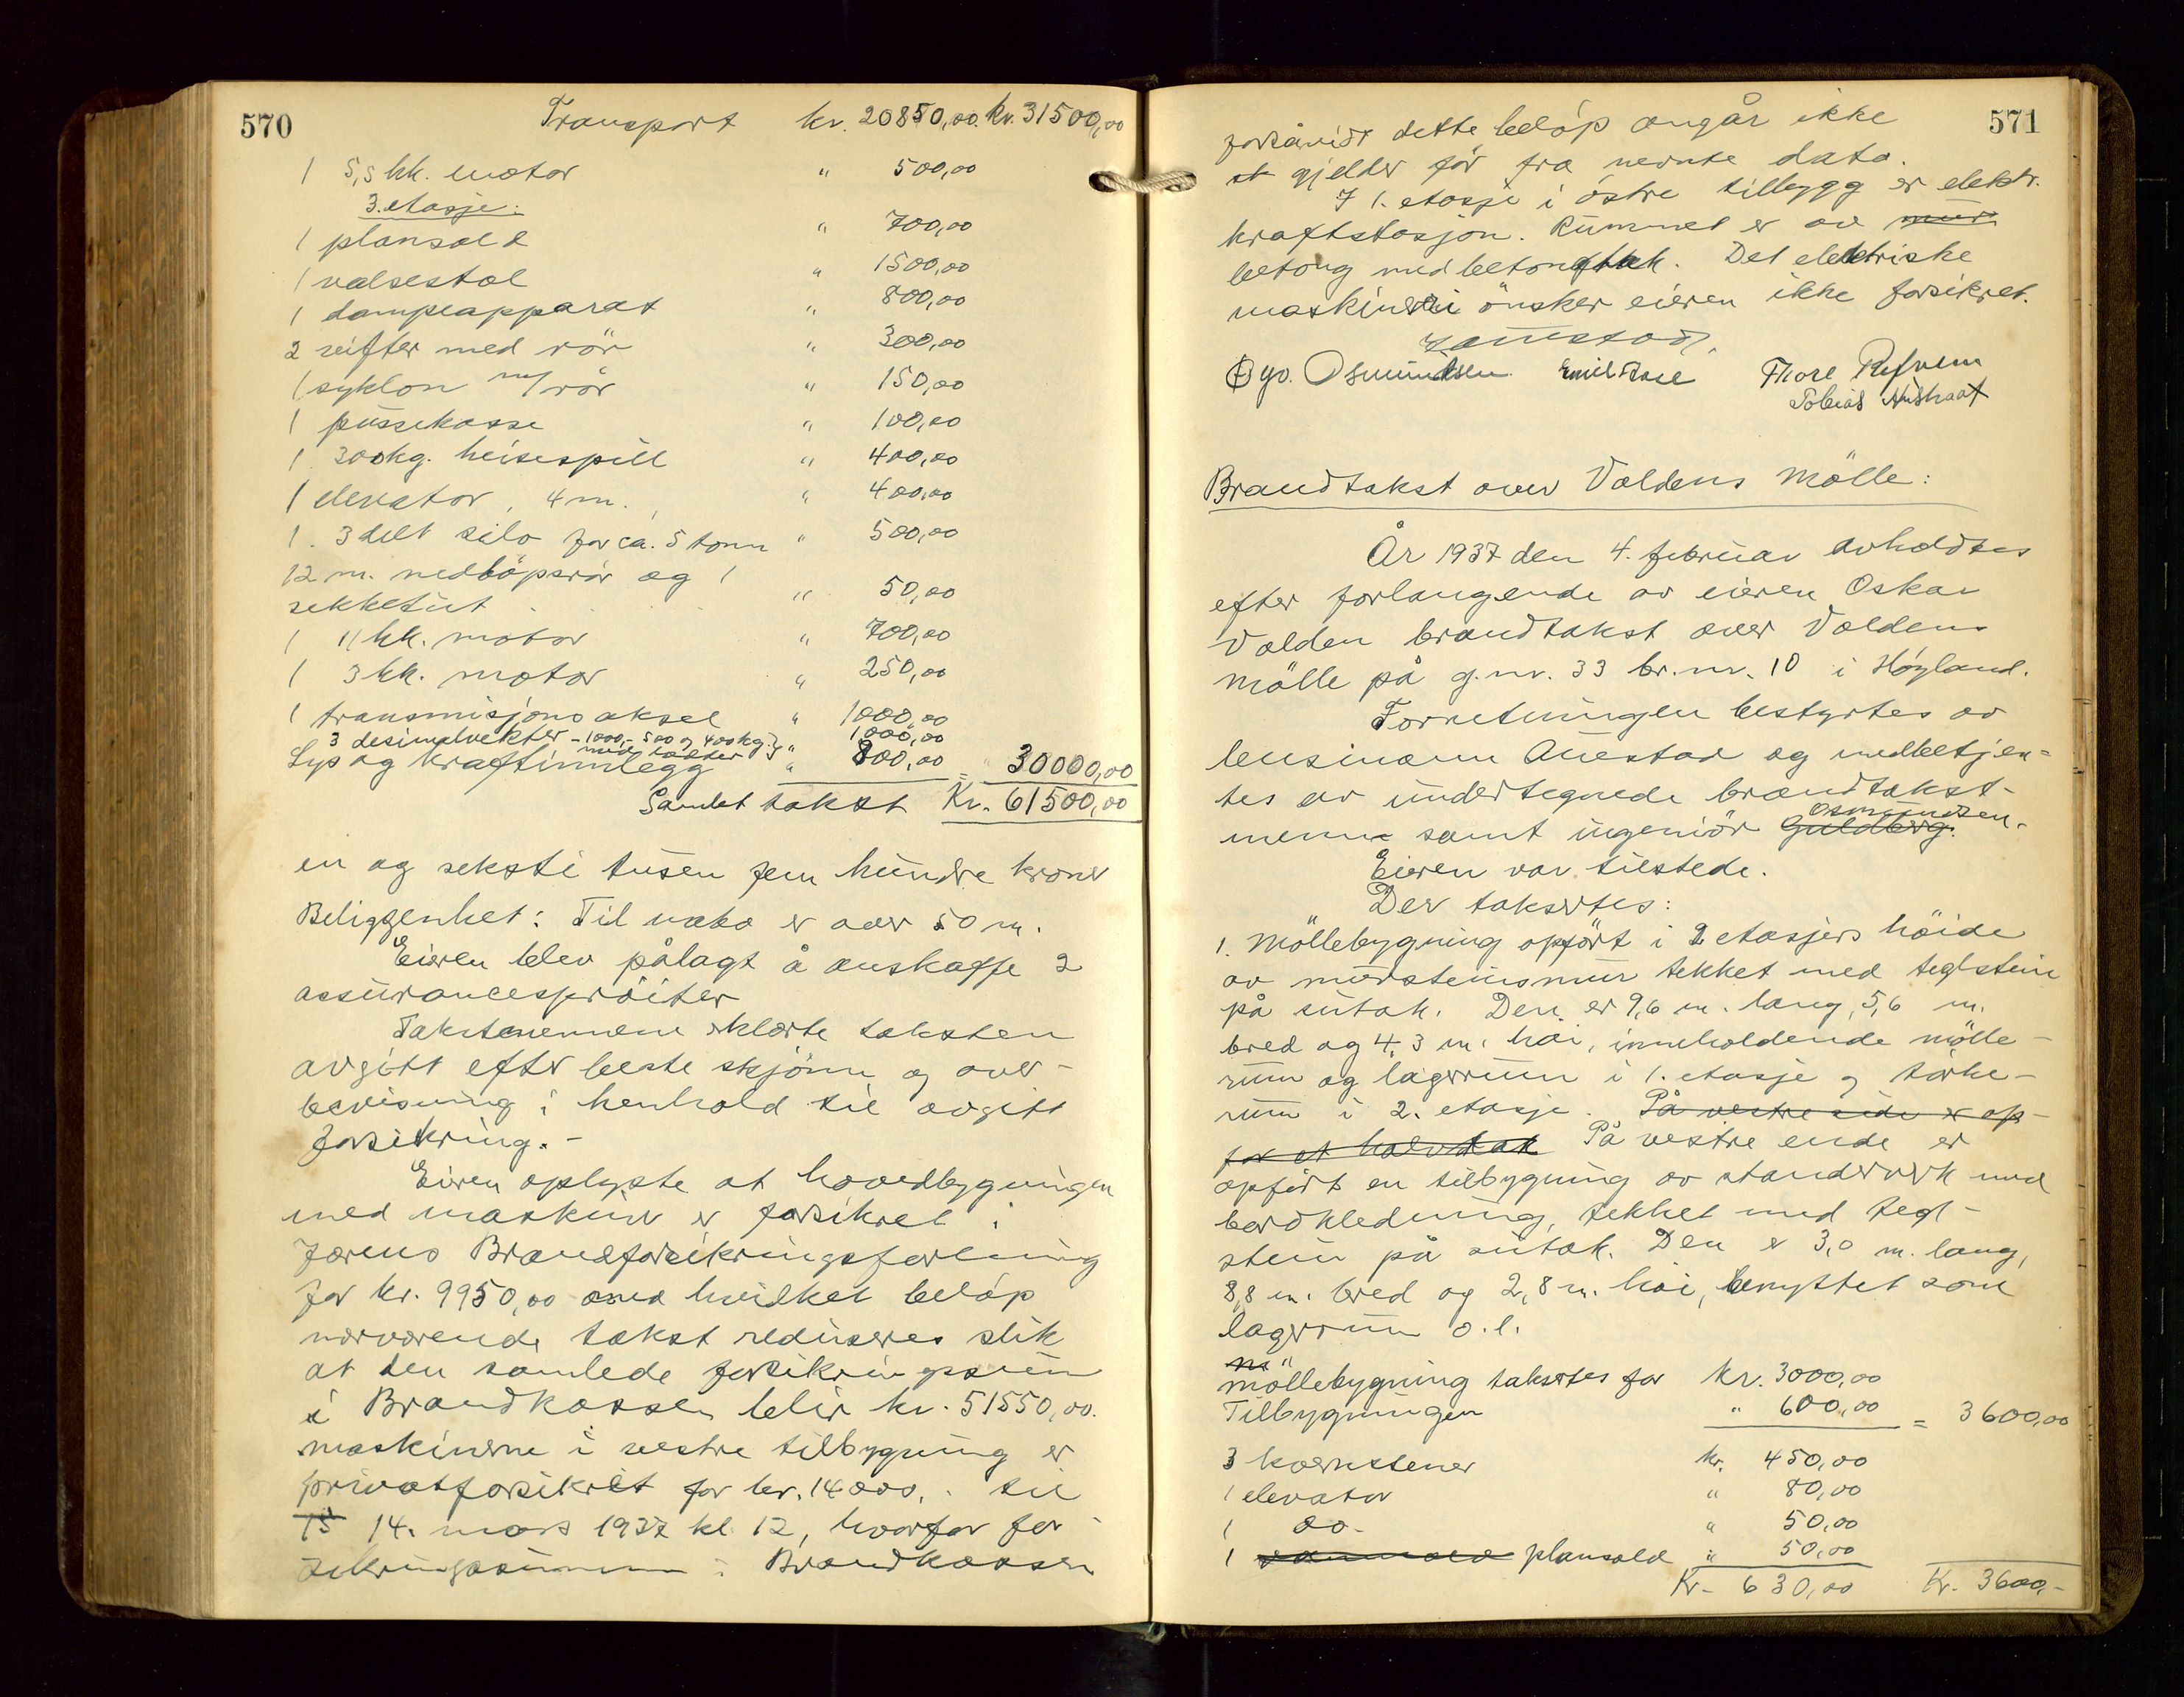 570
Transport kr. 20850,00. Kr. 31500,00
1 5,5 hk. motor " 500,00
3. etasje:
1 plansold " 700,00
1 valsestol " 1500,00
1 dampeapparat " 800,00
2 reifter med rör " 300,00
1 syklon m/rör " 150,00
1 püssekasse " 100,00
1 300kg. heisespill " 400,00
1 elevator, 4 m. " 400,00
1. 3 delt silo for ca. 5 tonn " 500,00
12 m. nedløpsrör og 1
sekketüt " 50,00
1 11 hk. motor " 700,00
1 3 hk. motor " 250,00
1 transmisjonsaksel " 1000,00
3 desimalvekter - 1000,- 500 og 400kg. " 1000,00
med lodder
Lys og kraftinnlegg " 800,00 = " 30000,00
Samlet takst Kr. 61500,00
en og seksti tusen fem hündre kroner
Beliggenhet: Til nabo er over 50 m.
Eieren blev pålagt å anskaffe 2
assürancesprøiter
Takstmennene erklærte taksten
avgitt efter beste skjönn og over-
bevisning i henhold til avgitt
forsikring. -
Eieren oplyste at hovedbygningen
med maskiner er forsikret i
Jærens Brandforsikringsforening
for kr. 9950,00 med hvilket beløp
nærværende takst reduseres slik
at den samlede forsikringssüm
i Brandkassen blir kr. 51550,00.
maskinerne i vestre tilbygning er
privatforsikret for kr. 14000,. til
15 14. mars 1937 kl. 12, hvorfor for-
sikringssummen i Brandkassen
571
forsåvidt dette beløp angår ikke
gjelder før fra nevnte dato.
I 1. etasje i östre tilbygg er elektr.
kraftstasjon. Rümmet er av mür
betong med betongtak. Det elektriske
maskineri önsker eieren ikke forsikret.
Auestad,
Osmundsen Thore Refvem
Tobias
Brandtakst over Voldens Mölle:
År 1937 den 4. februar avholdtes
efter forlangende av eieren Oskar
Volden brandtakst over Voldens
Mölle på g.nr. 33 br.nr. 10 i Høyland.
Forretningen bestyrtes av
lensmann Auestad og medbetjen=
tes av undertegnede brandtakst-
menn samt ingeniör Guldberg. Osmundsen.
Eieren var tilstede.
Der taksertes:
1. Möllebygning opført i 2 etasjers höide
av mürsteinsmür tekket med teglstein
på sütak. Den er 9,6 m. lang, 5,6 m.
bred og 4,3 m. høi, inneholdende mölle-
rüm og lagerrüm i 1. etasje og tørke-
rüm i 2. etasje. På vestre side er op-
før et halvtak På vestre ende er
opført en tilbygning av standerverk med
bordkledning, tekket med tegl-
stein på sütak. Den er 3,0 m. lang,
8,8 m. bred og 2,8 m. høi, benyttet som
lagerrüm o. l.
Möllebygning taksertes for Kr. 3000,00
Tilbygningen " 600,00 = 3600,00
3 kvernstener kr. 450,00
1 elevator " 80,00
1 do- " 50,00
1 plansold " 50,00
Kr- 630,00 Kr. 3600,-